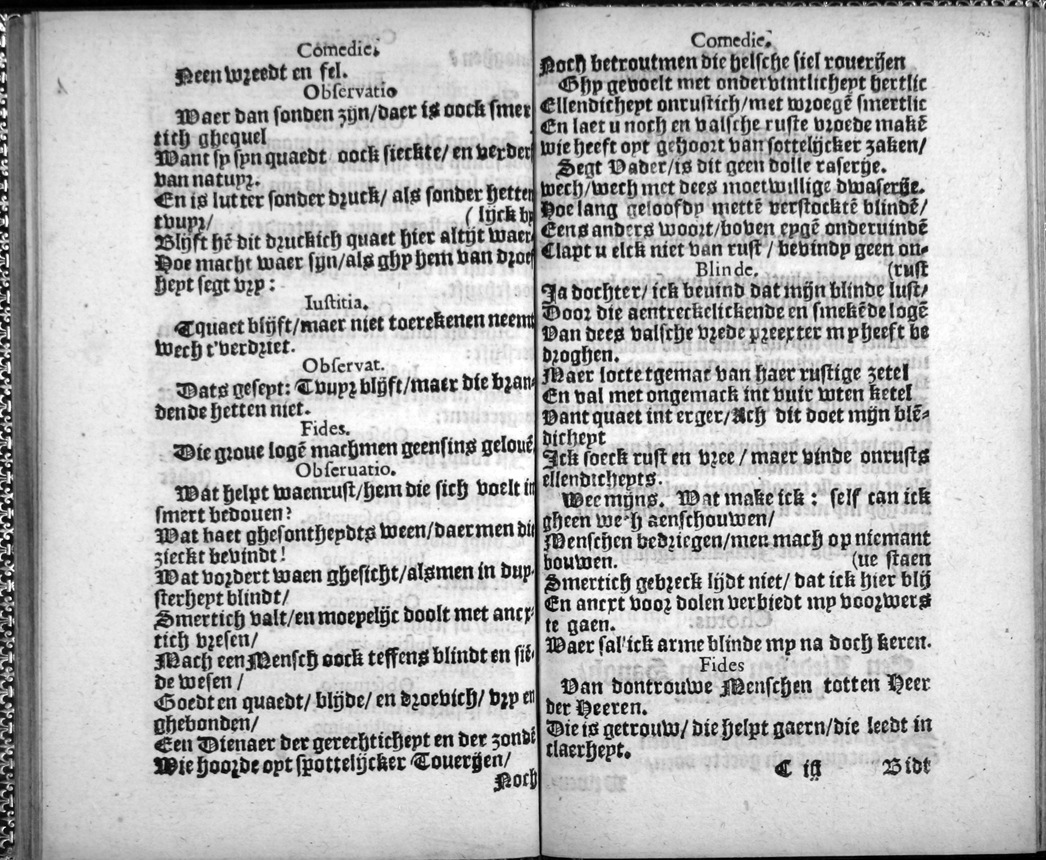 Comedie.
Neen wreedt en fel.
Observatio
Waer dan sonden zijn/daer is oock smer
tich ghequel
Want sy syn quaedt oock sieckte/ en verder
van natuyr.
En is lutter sonder druck/ als sonder hetten
tvuyr/ ( lijck by
Blijft hē dit druckich quaet hier altijt waer
Hoe macht waer sijn/als ghy hem van droe
heyt segt vry :
Iustitia.
Tquaet blijft/maer niet toerekenen neemt
wech t'verdriet.
Observat.
Dats geseyt: Tvuyr blijft/maer die bran-
dende hetten niet.
Fides.
Die groue logē machmen geensins gelouē,
Obseruatio.
Wat helpt waenrust/hem die sich voelt in
smert bedouen?
Wat baet ghesontheydts ween/daermen die
zieckt bevindt!
Wat vordert waen ghesicht/alsmen in duy-
sterheyt blindt/
Smertich valt/en moeyelijc doolt met ancx-
tich vresen/
Mach een Mensch oock teffens blindt en siē-
de wesen /
Goedt en quaedt/ blijde/ en droevich/ vry en
ghebonden/
Een Dienaer der gerechticheyt en der zondē
Wie hoorde oyt spottelijcker Toverijen/
Noch
Comedie.
Noch betroutmen die helsche siel roverijen
Ghy gevoelt met ondervintlicheyt hertlic
Ellendicheyt onrustich/met wroegē smertlic
En laet u noch en valsche ruste vroede makē
wie heeft oyt gehoort van sottelijcker zaken/
Segt Vader/is dit geen dolle raserije.
wech/wech met dees moetwillige dwaserije.
Hoe lang geloofdy mettē verstocktē blindē/
Eens anders woort/boven eygē onderuindē
Clapt u elck niet van rust / bevindy geen on-
Blinde. (rust
Ja dochter/ ick beuind dat mijn blinde lust/
Door die aentreckelickende en smekēde logē
Van dees valsche vrede preexter my heeft be
droghen.
Maer loctetgemac van haer rustige zetel
En val met ongemack int vuir wten ketel
Vant quaet int erger/Ach dit doet mijn blē-
dicheyt
Ick soeck rust en vree / maer vinde onrusts
ellendicheyts.
Wee mijns. Wat make ick : self can ick
gheen wech aenschouwen/
Menschen bedriegen/men mach op niemant
bouwen. (ue staen
Smertich gebreck lijdt niet/ dat ick hier blij
En ancxt voor dolen verbiedt my voorwers
te gaen.
Waer sal'ick arme blinde my na doch keren.
Fides
Van dontrouwe Menschen totten Heer
der Heeren.
Die is getrouw/ die helpt gaern/die leedt in
claerheyt.
C iij Bidt